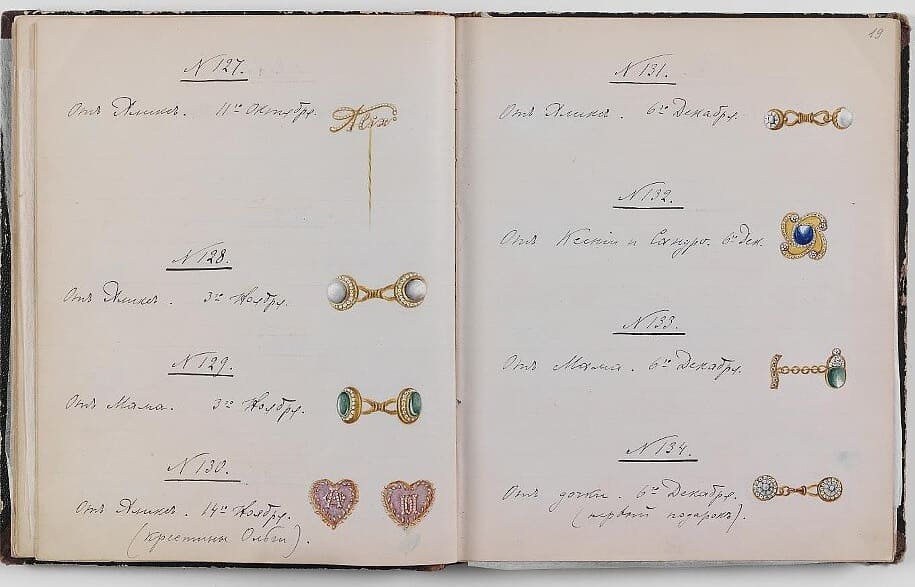 N 127.
Отъ Аликсъ. 11го Октября.
Alix
N 128.
Отъ Аликсъ. 3го Ноября.
N 129.
Отъ Мамá. 3го Ноября.
N 130.
Отъ Аликсъ. 14го Ноября.
(Крестины Ольги).
А Н
19
N 131.
Отъ Аликсъ. 6го Декабря.
N 132.
Отъ Ксеніи и Сандро. 6го Дек.
N 133.
Отъ Мамá. 6го Декабря.
N 134.
Отъ дочки. 6го Декабря.
(первый подарокъ).